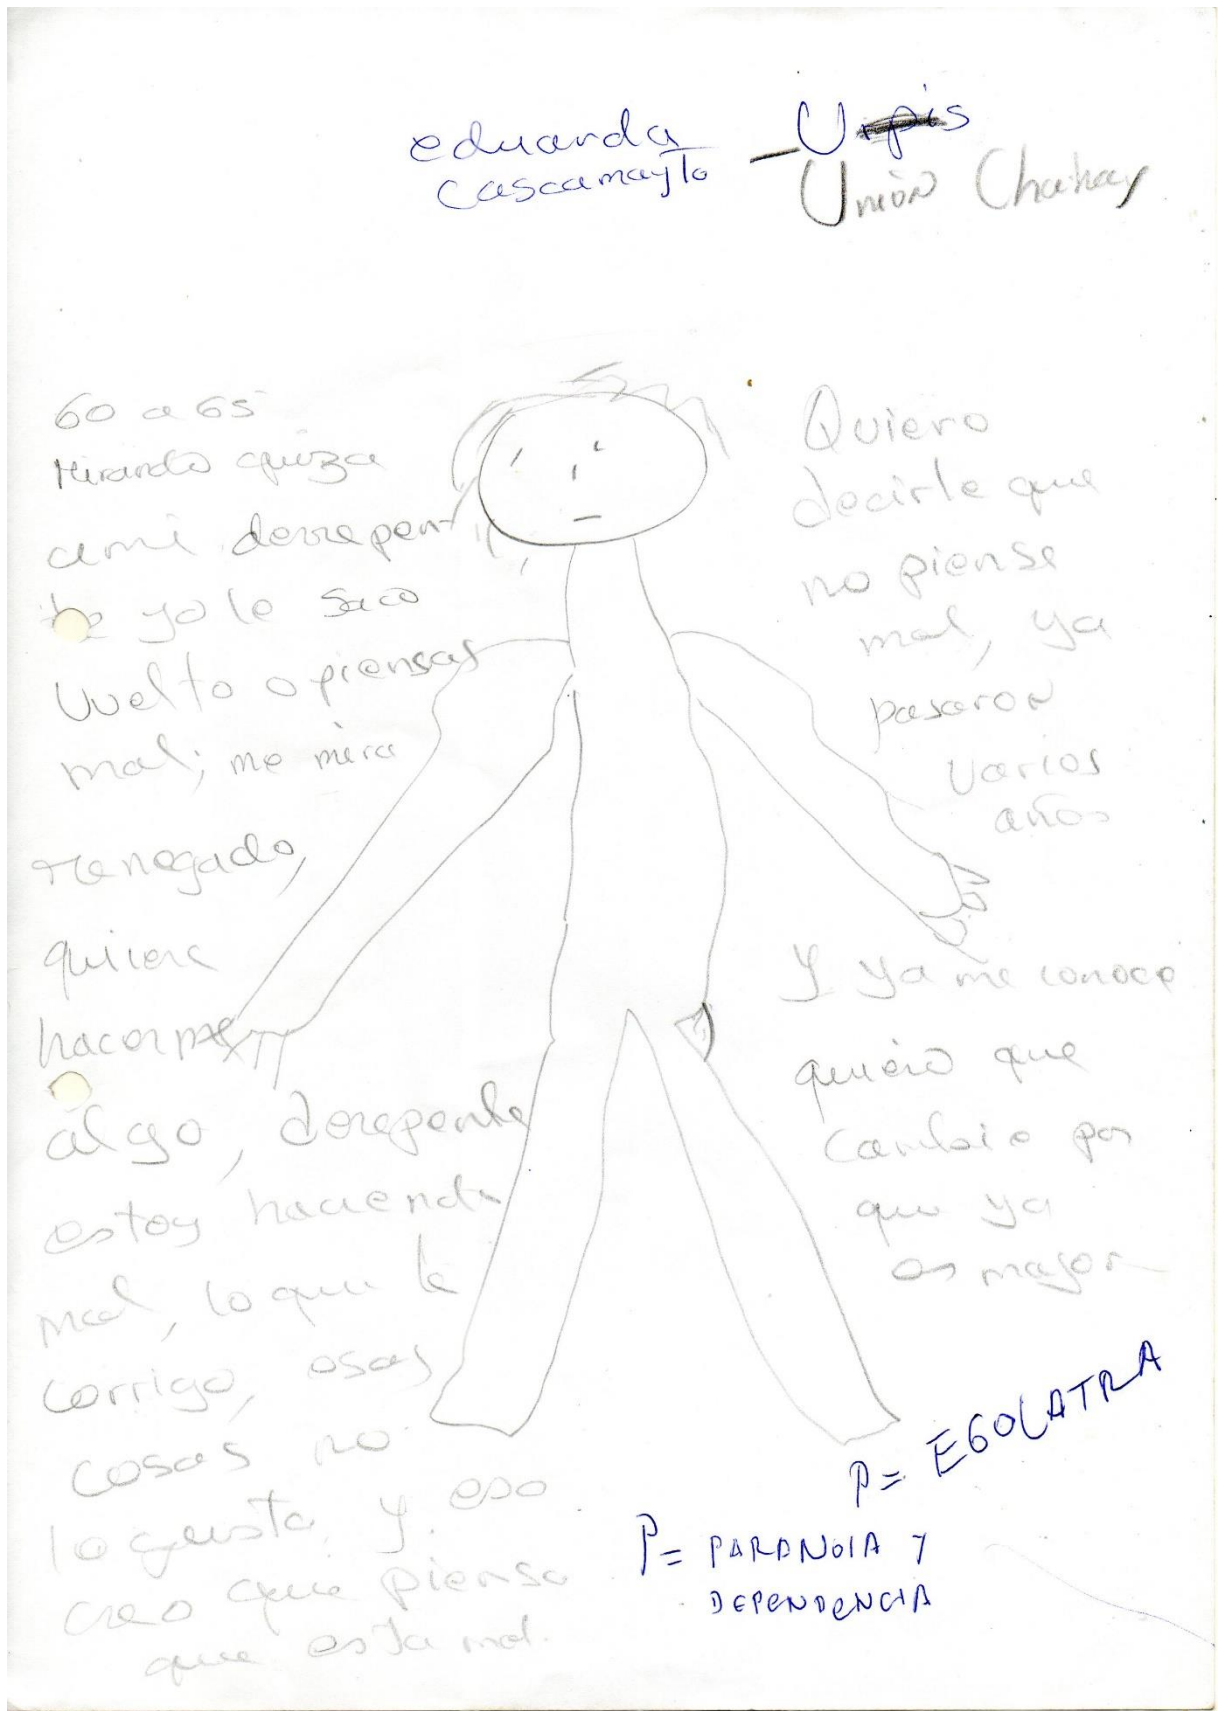 eduarda - Urpis
Cascamayta
Unión Chahay
60 a 65
Mirando quiza
ami derrepen
te yo le saco
vuelto o piensas
mal; me mira
renegado,
quiere
hacerme
algo, derepente
estoy haciendo
mal, lo que le
corrigo, esas
cosas no
le gusta y eso
creo que piensa
que esta mal.
Quiero
decirle que
no piense
mal, ya
pasaron
varios
años
Y ya me conoce
quiero que
cambie por
que ya
es mayor
P= EGOLATRA
P= PARANOIA Y
DEPENDENCIA